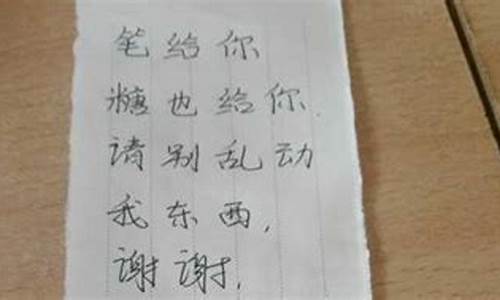 笔给你
糖也给你.
请别乱动
我东西,
谢谢.